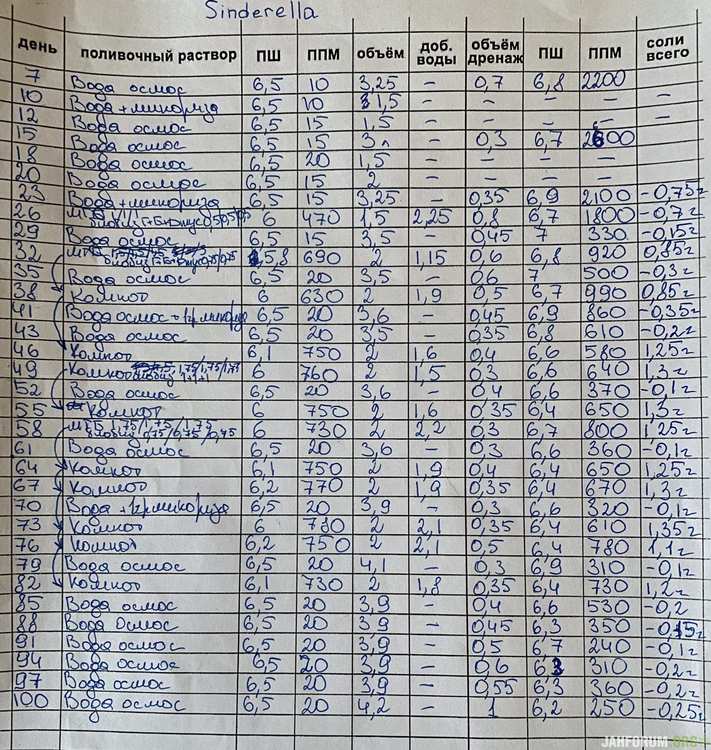 Sinderella
день поливочный раствор ПШ ППМ объём доб. воды объём дренаж ПШ ППМ соли всего
7 Вода осмос 6,5 10 3,25 – 0,7 6,8 2200
10 Вода + микориза 6,5 10 1,5 – – – –
12 Вода осмос 6,5 15 1,5 – – – –
15 Вода осмос 6,5 15 3л – 0,3 6,7 2600
18 Вода осмос 6,5 20 1,5 – – – –
20 Вода осмос 6,5 15 2 – – – –
23 Вода + микориза 6,5 15 3,25 – 0,35 6,9 2100 -0,75г
26 6 470 1,5 2,25 0,8 6,7 1800 -0,7г
29 Вода осмос 6,5 15 3,5 – 0,45 7 330 -0,15г
32 5,8 690 2 1,15 0,6 6,8 920 0,85г
35 Вода осмос 6,5 20 3,5 – 0,6 7 500 -0,3г
38 Компот 6 630 2 1,9 0,5 6,7 990 0,85г
41 Вода осмос + 1гр микориза 6,5 20 3,6 – 0,45 6,9 860 -0,35г
43 Вода осмос 6,5 20 3,5 – 0,35 6,8 610 -0,2г
46 Компот 6,1 750 2 1,6 0,4 6,6 580 1,25г
49 Компот 6 760 2 1,5 0,3 6,6 640 1,3г
52 Вода осмос 6,5 20 3,6 – 0,4 6,6 370 -0,1г
55 Компот 6 750 2 1,6 0,35 6,4 650 1,3г
58 6 730 2 2,2 0,3 6,7 800 1,25г
61 Вода осмос 6,5 20 3,6 – 0,3 6,6 360 -0,1г
64 Компот 6,1 750 2 1,9 0,4 6,4 650 1,25г
67 Компот 6,2 770 2 1,9 0,35 6,4 670 1,3г
70 Вода + 1гр микориза 6,5 20 3,9 – 0,3 6,6 320 -0,1г
73 Компот 6 780 2 2,1 0,35 6,4 610 1,35г
76 Компот 6,2 750 2 2,1 0,5 6,4 780 1,1г
79 Вода осмос 6,5 20 4,1 – 0,3 6,9 310 -0,1г
82 Компот 6,1 730 2 1,8 0,35 6,4 730 1,2г
85 Вода осмос 6,5 20 3,9 – 0,4 6,6 530 -0,2
88 Вода осмос 6,5 20 3,9 – 0,45 6,3 350 -0,15г
91 Вода осмос 6,5 20 3,9 – 0,5 6,7 240 -0,1г
94 Вода осмос 6,5 20 3,9 – 0,6 6,3 310 -0,2г
97 Вода осмос 6,5 20 3,9 – 0,55 6,3 360 -0,2г
100 Вода осмос 6,5 20 4,2 – 1 6,2 250 -0,25г
JAHFORUM.ORG